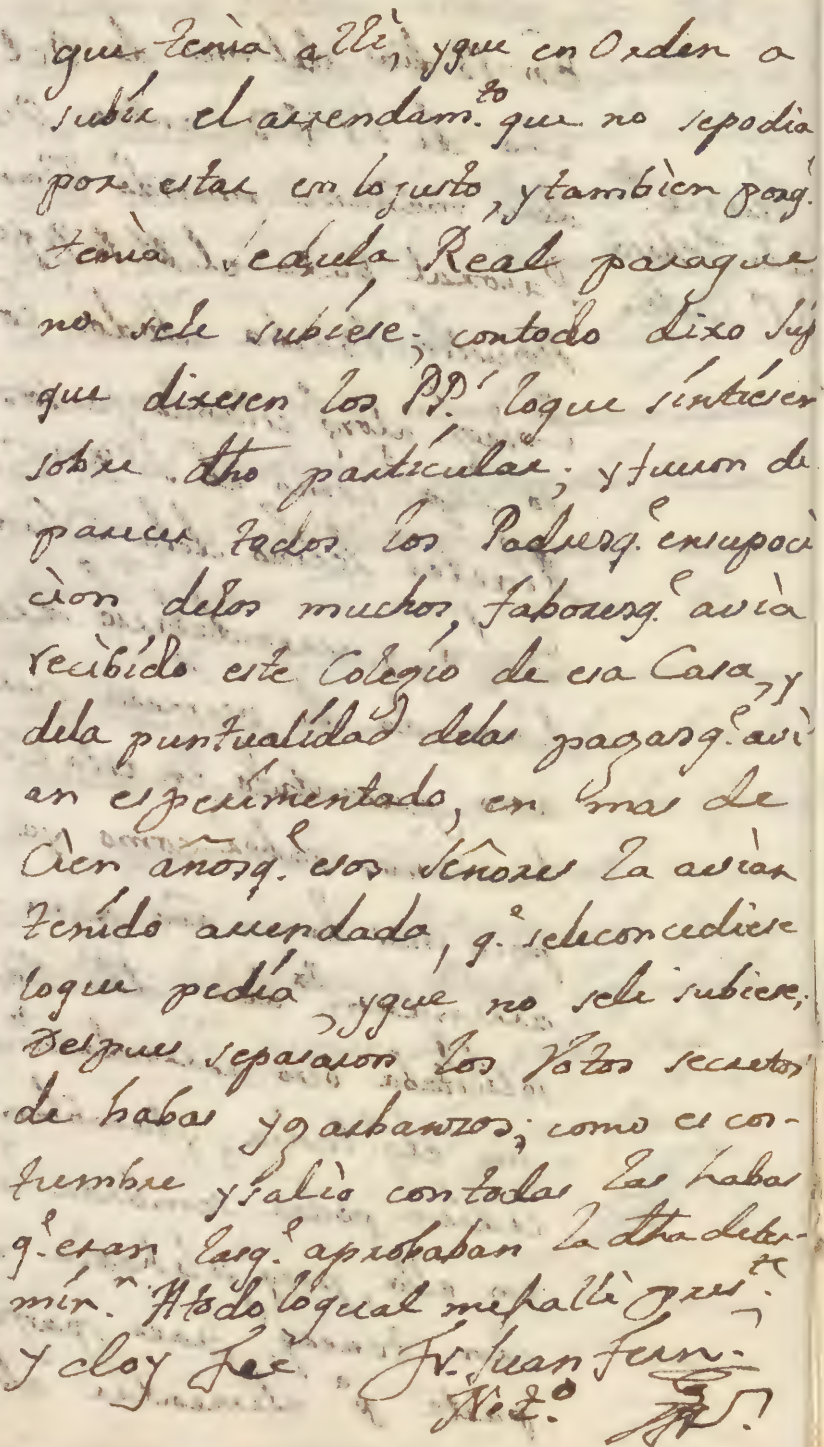 que tenìa allì, yque en Orden a
subir el arrendam.to que no sepodia
por estar en lo justo, ytambìen porq.
tenìa Cedula Real paraque
no sele subiese; contodo dixo Su P
que dixesen los PP. loque sintiesen
sobre dho particular; yfueron de
parecer todos los Padresq.e ensuposi
cion delos muchos, faboresq.e avìa
recìbído este Colegio de esa Casa, y
dela puntualidad delas pagasq.e avì
an esperimentado, en mas de
Cien anosq.e esos Señores la avìan
tenído arrendada, q.e seleconcediese
loque pedía, yque no sele subiese;
Despues sepasaron los Votos secretos
de habas ygarbanzos; como es cos-
tumbre ysalìo contodas las habas
q.e eran lasq.e aprobaban la dha deter-
min.n Atodo loqual mehallè pres.te
y doy Fee Fr. Juan Fern.